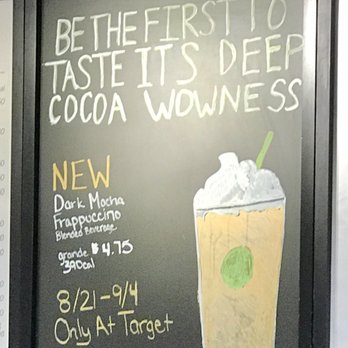 BE THE FIRST TO
TASTE ITS DEEP
COCOA WOWNESS
NEW
Dark Mocha
Frappuccino
Blended Beverage
grande $4.75
390cal
8/21-9/4
Only At Target